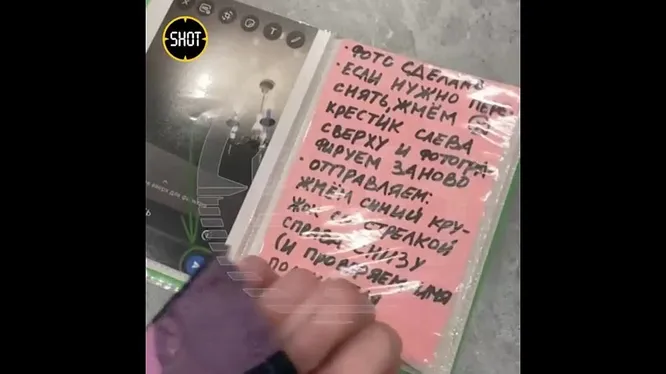 SHOT
T
• ФОТО СДЕЛАНО
• ЕСЛИ НУЖНО ПЕРЕ-
СНЯТЬ, ЖМЁМ
КРЕСТИК СЛЕВА
СВЕРХУ И ФОТОГРА-
ФИРУЕМ ЗАНОВО
• ОТПРАВЛЯЕМ:
ЖМЁМ СИНИЙ КРУ-
ЖОК СО СТРЕЛКОЙ
СПРАВА СНИЗУ
(И ПРОВЕРЯЕМ ИМЯ